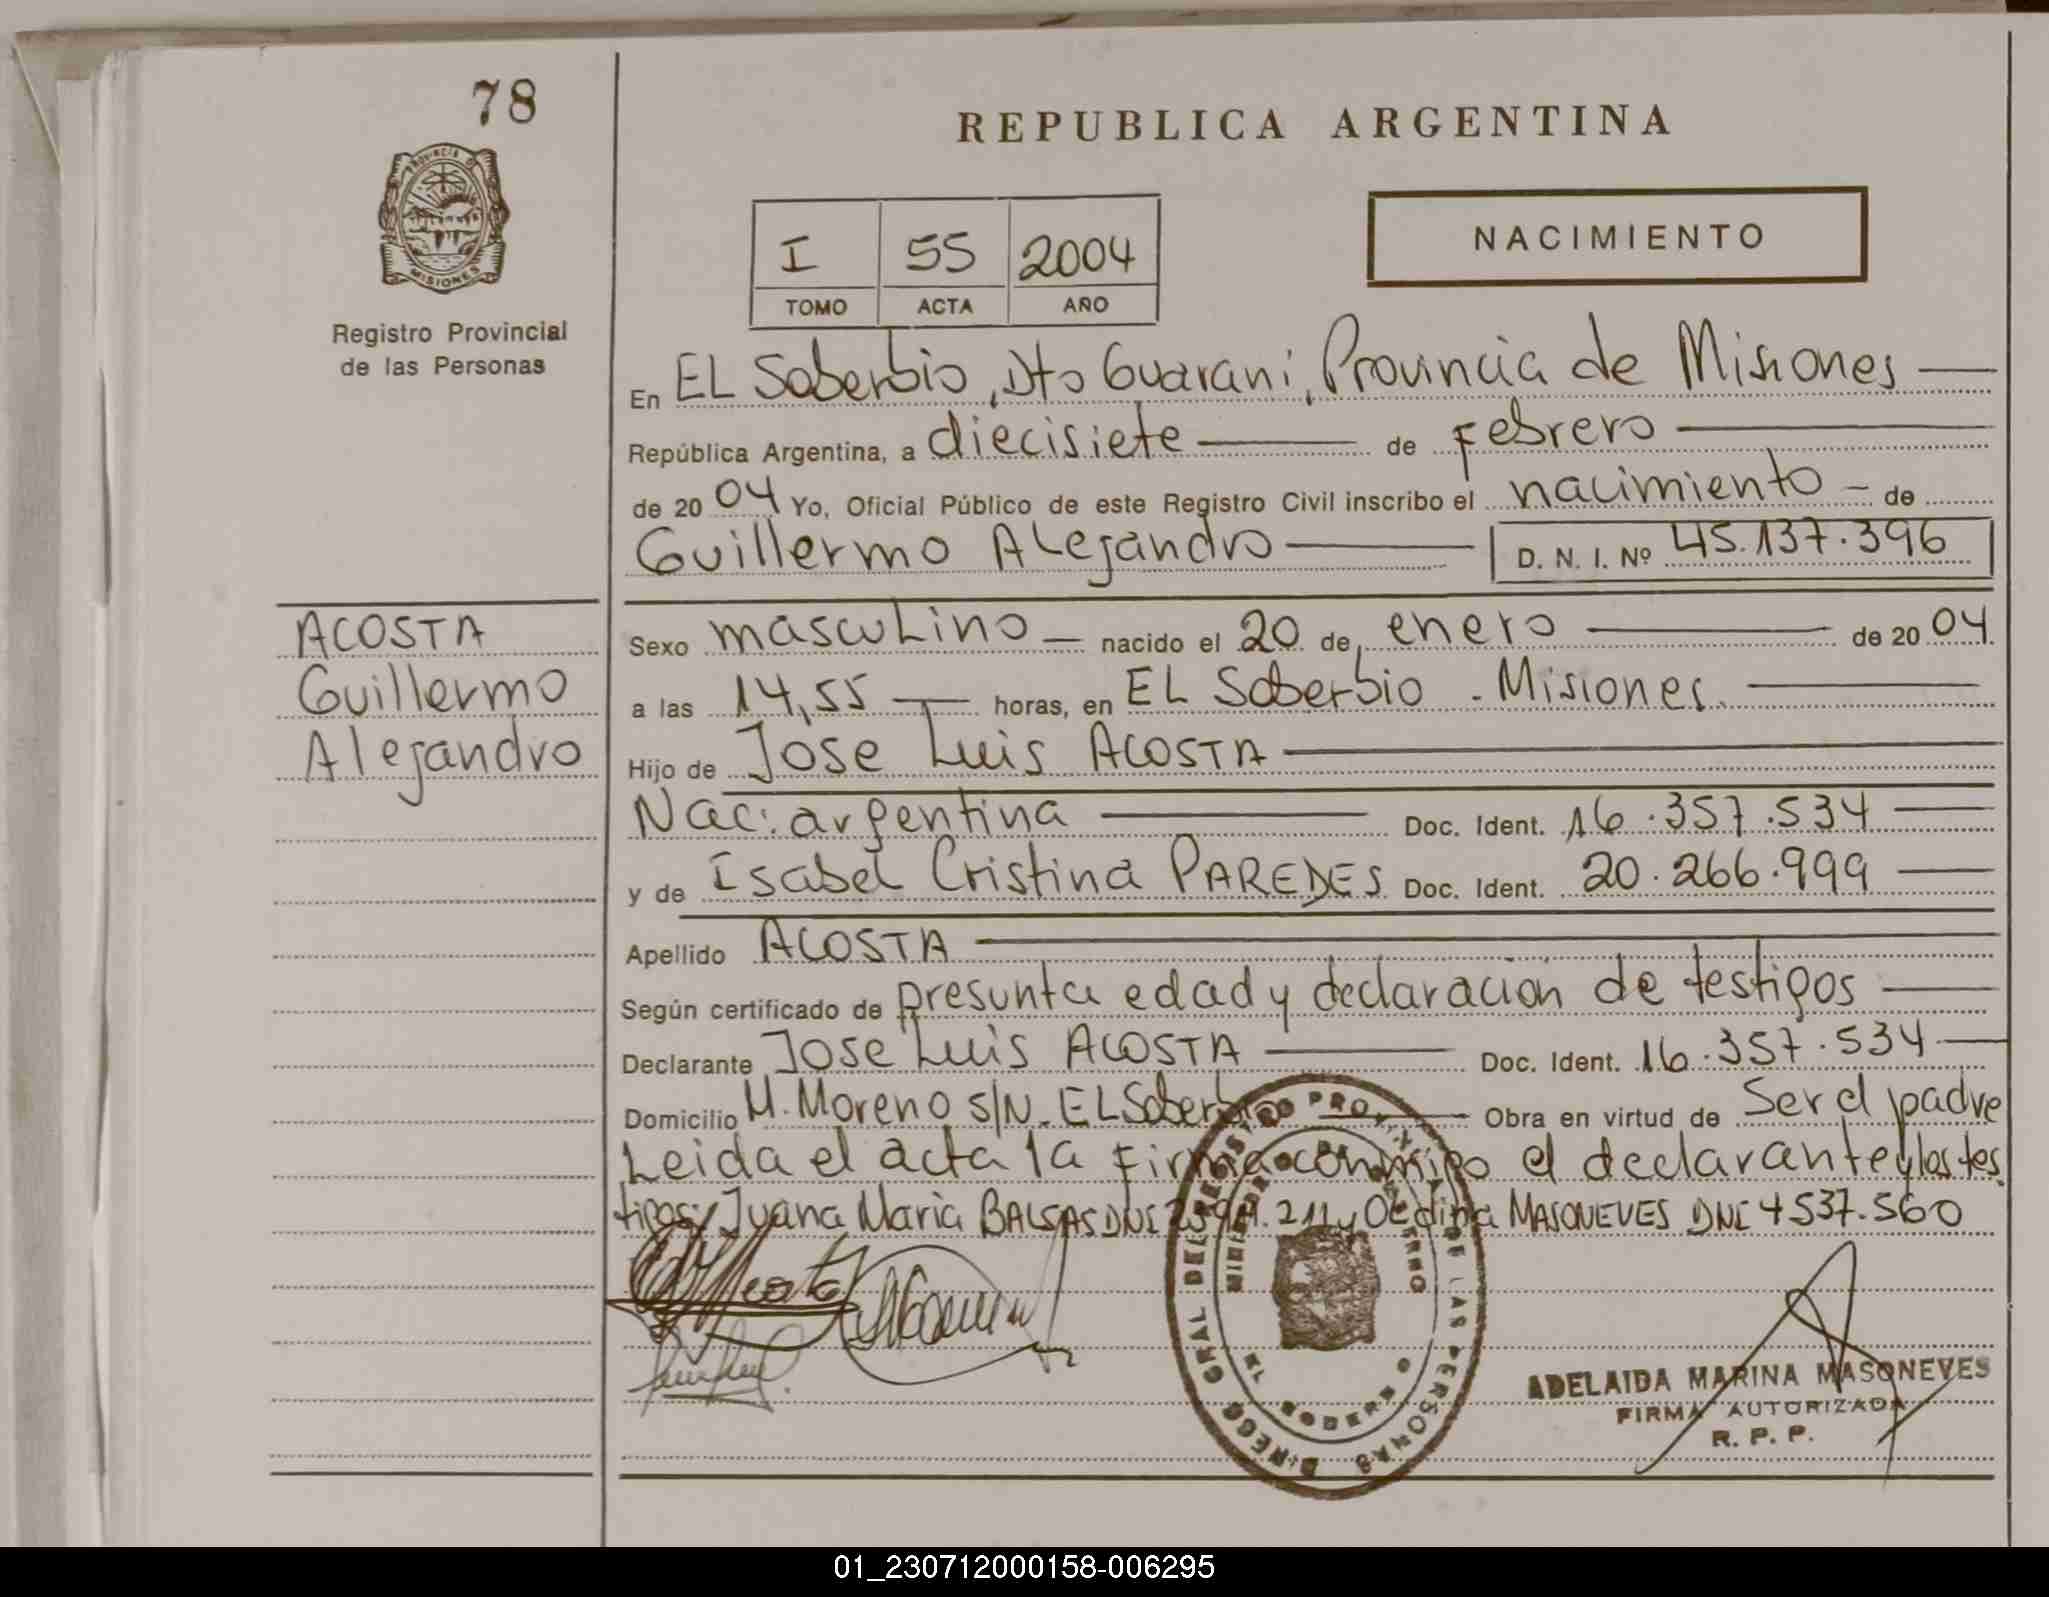 78
PROVINCIA DE
MISIONES
Registro Provincial
de las Personas
REPUBLICA ARGENTINA
I 55 2004
TOMO ACTA AÑO
NACIMIENTO
En EL Soberbio, Dto Guarani, Provincia de Misiones
República Argentina, a diecisiete de Febrero
de 2004 Yo, Oficial Público de este Registro Civil inscribo el nacimiento de
Guillermo Alejandro D. N. I. Nº 45.137.396
ACOSTA
Guillermo
Alejandro
Sexo masculino nacido el 20 de enero de 2004
a las 14,55 horas, en EL Soberbio - Misiones.
Hijo de Jose Luis ACOSTA
Nac: argentina Doc. Ident. 16.357.534
y de Isabel Cristina PAREDES Doc. Ident. 20.266.999
Apellido ACOSTA
Según certificado de presunta edad y declaracion de testigos
Declarante Jose Luis ACOSTA Doc. Ident. 16.357.534
Domicilio M. Moreno S/N. EL Soberbio Obra en virtud de Ser el padre
Leida el acta la Firma conmigo el declarante y los tes
tigos: Juana Maria BALSAS DNI 211 y MASONEVES DNI 4537.560
DIRECC GRAL DEL REGISTRO PROVINCIAL DE LAS PERSONAS
MINISTERIO DE GOBIERNO
EL SOBERBIO
ADELAIDA MARINA MASONEVES
FIRMA AUTORIZADA
R. P. P.
01_230712000158-006295